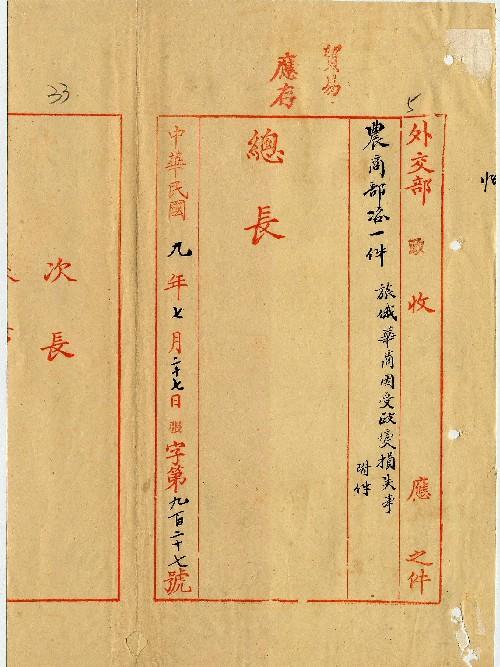 5
外交部 收 應 之件
農商部咨一件 旅俄華商因受政變損失事
附件
貿易
應存
總長
中華民國九年七月二十七日 字第九百二十七號
33
次長